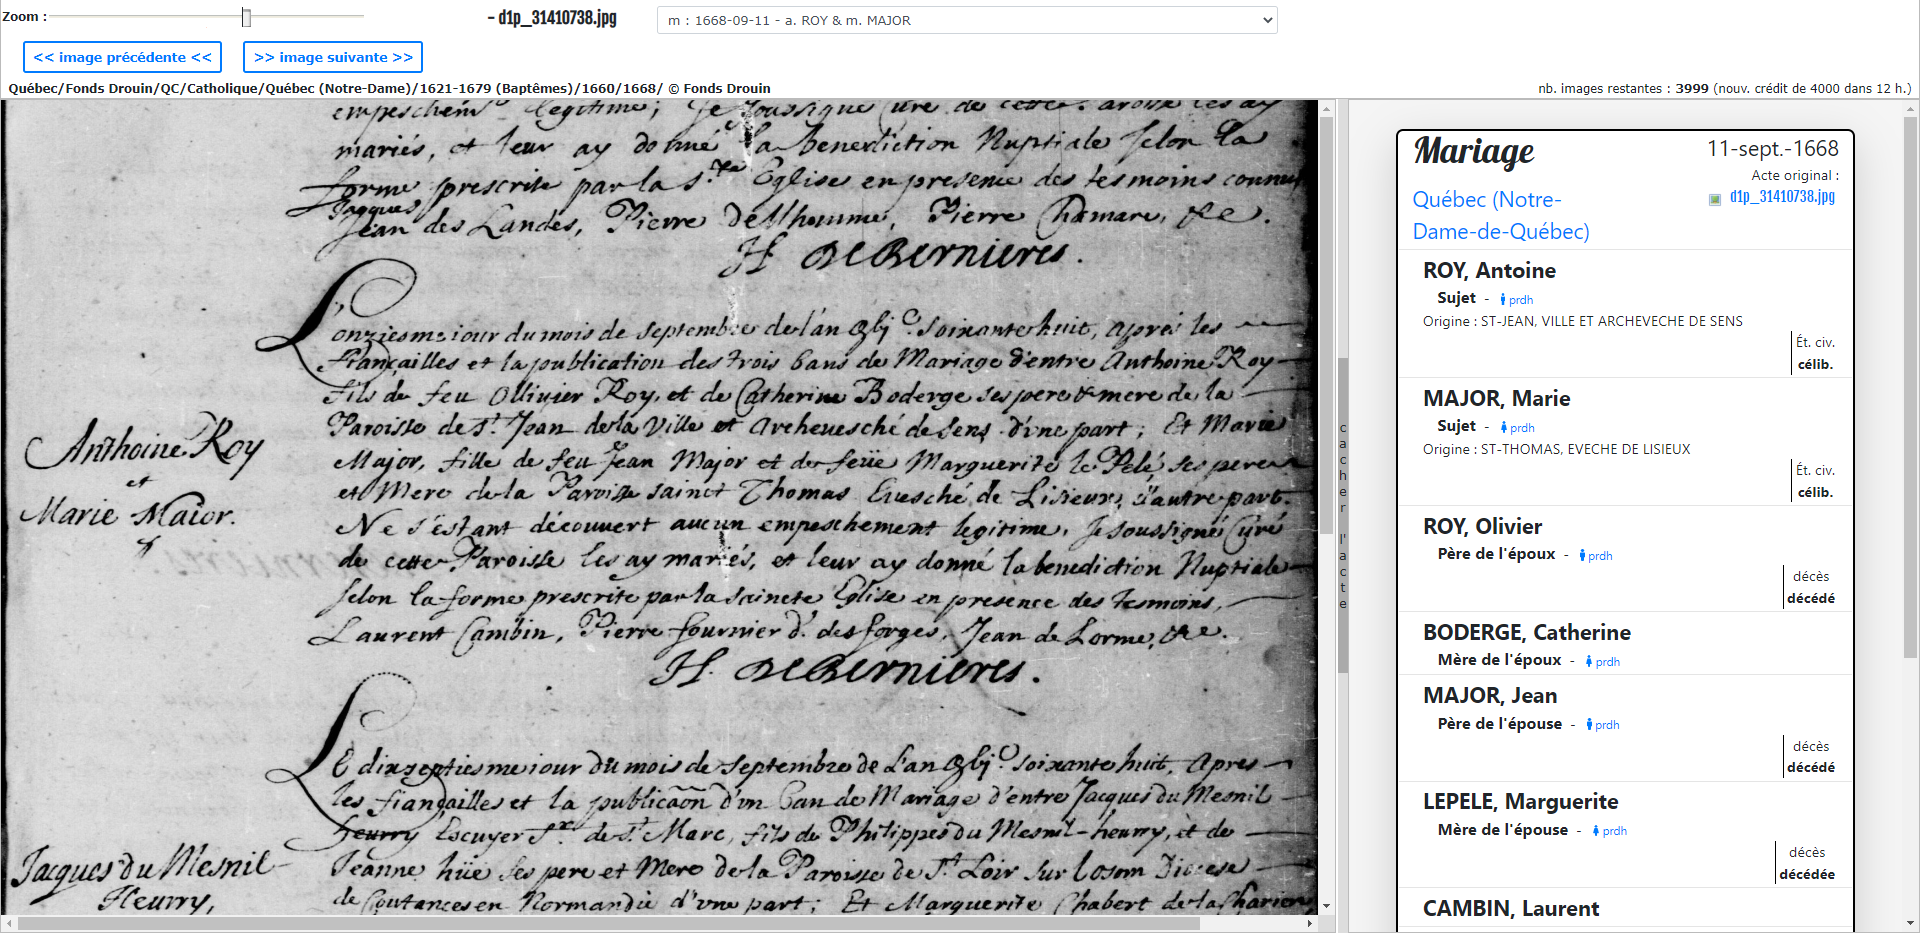 Zoom :
– d1p_31410738.jpg
m : 1668-09-11 - a. ROY & m. MAJOR
<< image précédente <<
>> image suivante >>
Québec/Fonds Drouin/QC/Catholique/Québec (Notre-Dame)/1621-1679 (Baptêmes)/1660/1668/ © Fonds Drouin
nb. images restantes : 3999 (nouv. crédit de 4000 dans 12 h.)
empeschem. legitime; Je soussigné Curé de cette Paroisse les ay
mariés, et leur ay donné la benediction Nuptiale selon la
forme prescrite par la Ste Eglise en presence des tesmoins connus
Jacques
Jean des Landes, Pierre de Lhomme, Pierre Chamare, &c.
H. de Bernieres.
L'onziesme jour du mois de septembre de l'an gbj.c soixante huit, Aprés les
fiançailles et la publication des trois bans de Mariage d'entre Anthoine Roy
fils de feu Ollivier Roy, et de Catherine Boderge ses pere & mere de la
Paroisse de St. Jean de la Ville et Archevesché de Sens d'une part; Et Marie
Major, fille de feu Jean Major et de feüe Marguerite le Pelé, ses pere
et Mere de la Paroisse sainct Thomas Evesché de Lisieux, d'autre part.
Ne s'estant découvert aucun empeschement legitime, Je soussigné Curé
de cette Paroisse les ay mariés, et leur ay donné la benediction Nuptiale
selon la forme prescrite par la saincte Eglise en presence des tesmoins,
Laurent Cambin, Pierre fournier d. des forges, Jean de Lorme, &c.
H. de Bernieres.
Anthoine Roy
et
Marie Maior.
Le dixseptiesme jour du mois de septembre de l'an gbj.c soixante huit, Apres
les fiançailles et la publicaōn d'un ban de Mariage d'entre Jacques du Mesnil
heurry Escuyer Sr. de St. Marc, fils de Philippes du Mesnil-heurry, et de
Jeanne hüe ses pere et Mere de la Paroisse de St. Loir sur Diocese
de Coutances en Normandie d'une part; Et Marguerite Chabert de la
Jacques du Mesnil
Heurry,
cacher l'acte
Mariage
11-sept.-1668
Acte original :
d1p_31410738.jpg
Québec (Notre-
Dame-de-Québec)
ROY, Antoine
Sujet - prdh
Origine : ST-JEAN, VILLE ET ARCHEVECHE DE SENS
Ét. civ.
célib.
MAJOR, Marie
Sujet - prdh
Origine : ST-THOMAS, EVECHE DE LISIEUX
Ét. civ.
célib.
ROY, Olivier
Père de l'époux - prdh
décès
décédé
BODERGE, Catherine
Mère de l'époux - prdh
MAJOR, Jean
Père de l'épouse - prdh
décès
décédé
LEPELE, Marguerite
Mère de l'épouse - prdh
décès
décédée
CAMBIN, Laurent